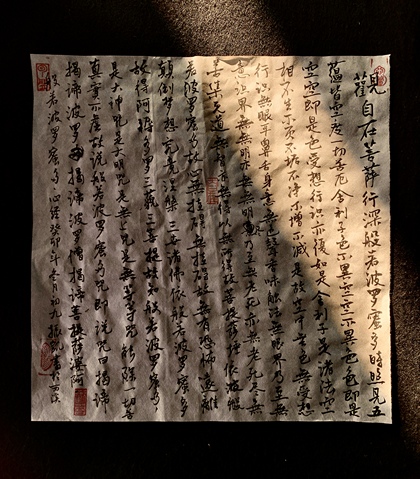 觀自在菩薩行深般若波罗蜜多時照見五
蕴皆空度一切苦厄舍利子色不異空空不異色色即是
空空即是色受想行识亦復如是舍利子是诸法空
相不生不灭不垢不净不增不减是故空中無色無受想
行识無眼耳鼻舌身意無色聲香味触法無眼界乃至無
意识界無無明亦無無明盡乃至無老死亦無老死盡無
苦集灭道無智亦無得以無所得故菩提萨埵依般
若波罗蜜多故心無罣碍無罣碍故無有恐怖遠離
顛倒梦想究竟涅槃三世诸佛依般若波罗蜜多
故得阿耨多罗三藐三菩提故知般若波罗蜜多
是大神咒是大明咒是無上咒是無等等咒能除一切苦
真實不虚故说般若波罗蜜多咒即说咒曰揭谛
揭谛波罗揭谛波罗僧揭谛菩提薩婆訶
般若波罗蜜多心经癸卯年冬月初九